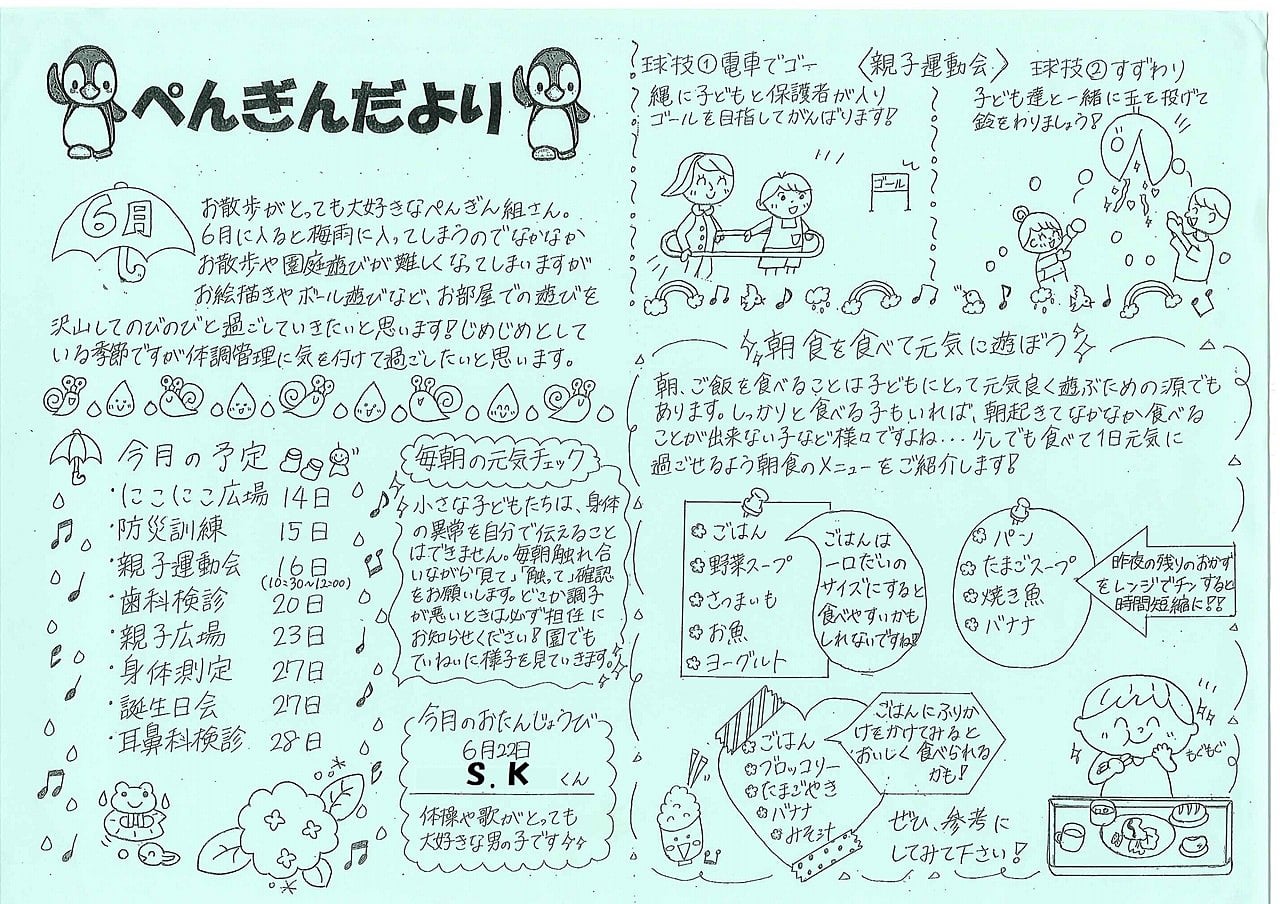 ぺんぎんだより
6月
お散歩がとっても大好きなぺんぎん組さん。
6月に入ると梅雨に入ってしまうのでなかなか
お散歩や園庭遊びが難しくなってしまいますが
お絵描きやボール遊びなど、お部屋での遊びを
沢山してのびのびと過ごしていきたいと思います!じめじめとして
いる季節ですが体調管理に気を付けて過ごしたいと思います。
今月の予定
・にこにこ広場 14日
・防災訓練 15日
・親子運動会 16日
(10:30〜12:00)
・歯科検診 20日
・親子広場 23日
・身体測定 27日
・誕生日会 27日
・耳鼻科検診 28日
毎朝の元気チェック
小さな子どもたちは、身体
の異常を自分で伝えること
はできません。毎朝触れ合
いながら「見て」「触って」確認
をお願いします。どこか調子
が悪いときは必ず担任に
お知らせください!園でも
ていねいに様子を見ていきます。
今月のおたんじょうび
6月22日
S.K くん
体操や歌がとっても
大好きな男の子です
〈親子運動会〉
球技①電車でゴー
縄に子どもと保護者が入り
ゴールを目指してがんばります!
ゴール
球技②すずわり
子ども達と一緒に玉を投げて
鈴をわりましょう!
朝食を食べて元気に遊ぼう
朝、ご飯を食べることは子どもにとって元気良く遊ぶための源でも
あります。しっかりと食べる子もいれば、朝起きてなかなか食べる
ことが出来ない子など様々ですよね...少しでも食べて1日元気に
過ごせるよう朝食のメニューをご紹介します!
ごはん
野菜スープ
さつまいも
お魚
ヨーグルト
ごはんは
一口だいの
サイズにすると
食べやすいかも
しれないですね!
パン
たまごスープ
焼き魚
バナナ
昨夜の残りのおかず
をレンジでチンすると
時間短縮に!!
ごはん
ブロッコリー
たまごやき
バナナ
みそ汁
ごはんにふりか
けをかけてみると
おいしく食べられる
かも!
もぐもぐ
ぜひ、参考に
してみて下さい!